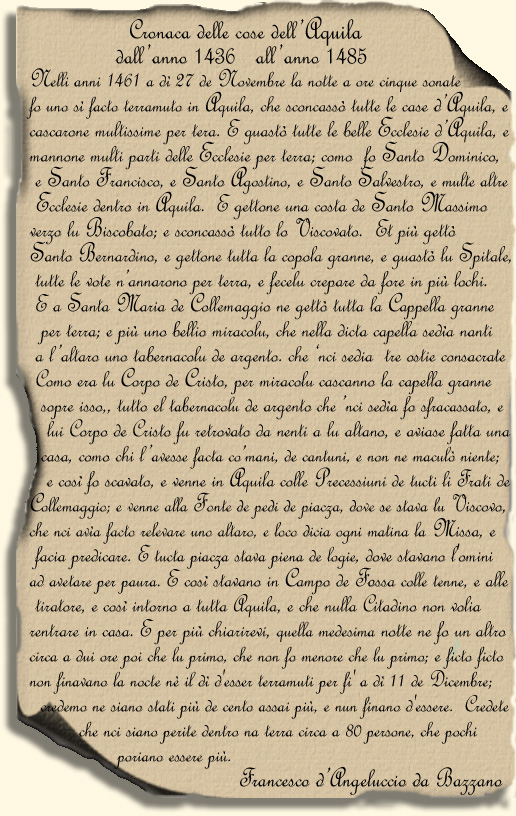 Cronaca delle cose dell'Aquila
dall'anno 1436 all'anno 1485
Nelli anni 1461 a di 27 de Novembre la notte a ore cinque sonate
fo uno sì facto terramuto in Aquila, che sconcassò tutte le case d'Aquila, e
cascarone multissime per tera. E guastò tutte le belle Ecclesie d'Aquila, e
mannone multi parti delle Ecclesie per terra; como fo Santo Dominico,
e Santo Francisco, e Santo Agostino, e Santo Salvestro, e multe altre
Ecclesie dentro in Aquila. E gettone una costa de Santo Massimo
verzo lu Biscobato; e sconcassò tutto lo Viscovato. Et più gettò
Santo Bernardino, e gettone tutta la copola granne, e guastò lu Spitale,
tutte le vote n'annarono per terra, e fecelu crepare da fore in più lochi.
E a Santa Maria de Collemaggio ne gettò tutta la Cappella granne
per terra; e più uno bellio miracolu, che nella dicta capella sedìa nanti
a l'altaro uno tabernacolu de argento. che 'nci sedia tre ostie consacrate
Como era lu Corpo de Cristo, per miracolu cascanno la capella granne
sopre isso,, tutto el tabernacolu de argento che 'nci sedìa fo sfracassato, e
lui Corpo de Cristo fu retrovato da nenti a lu altano, e aviase fatta una
casa, como chi l'avesse facta co'mani, de cantuni, e non ne maculò niente;
e così fo scavato, e venne in Aquila colle Precessiuni de tucti li Frati de
Collemaggio; e venne alla Fonte de pedi de piacza, dove se stava lu Viscovo,
che nci avìa facto relevare uno altaro, e loco dicia ogni matina la Missa, e
facia predicare. E tucta piacza stava piena de logie, dove stavano l'omini
ad avetare per paura. E così stavano in Campo de Fossa colle tenne, e alle
tiratore, e così intorno a tutta Aquila, e che nulla Citadino non volia
rentrare in casa. E per più chiarirevi, quella medesima notte ne fo un altro
circa a dui ore poi che lu primo, che non fo menore che lu primo; e ficto ficto
non finavano la nocte nè il dì d'esser terramuti per fi' a dì 11 de Dicembre;
credemo ne siano stati più de cento assai più, e nun finano d'essere. Credete
che nci siano perite dentro na terra circa a 80 persone, che pochi
poriano essere più.
Francesco d'Angeluccio da Bazzano